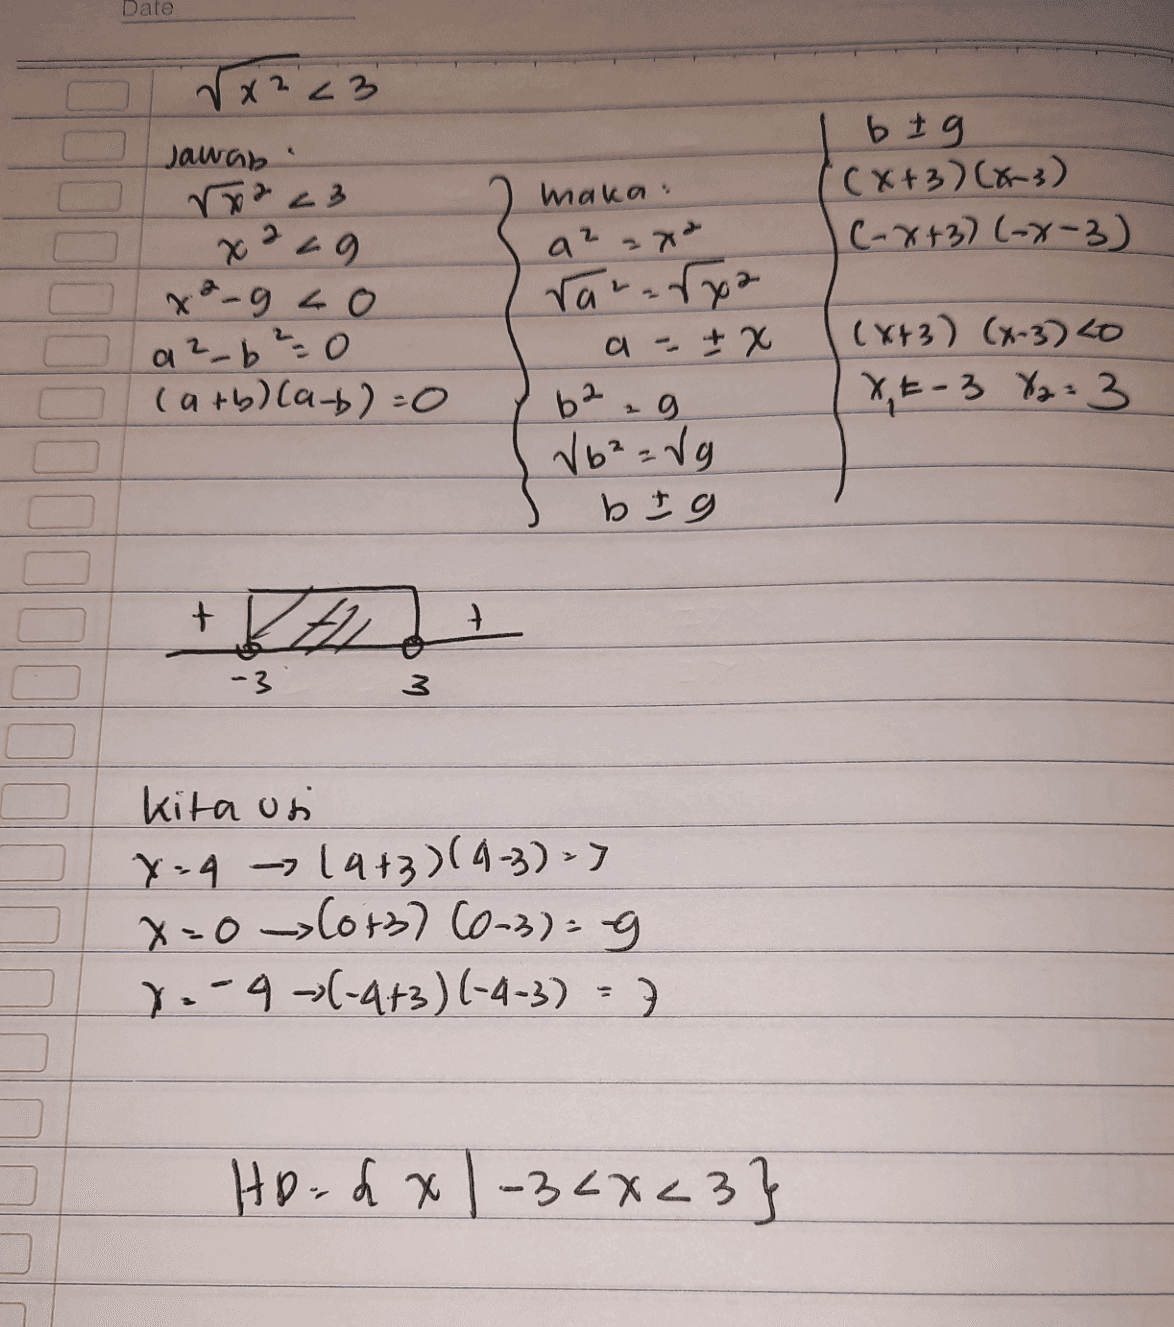 Date
√x² < 3
Jawab :
√x² < 3
x² < 9
x² - 9 < 0
a² - b² = 0
(a+b)(a-b) = 0
maka :
a² = x²
√a² = √x²
a = ± x
b² = 9
√b² = √9
b ± 9
b ± 9
(x+3)(x-3)
(-x+3)(-x-3)
(x+3) (x-3) <0
x₁ = -3 x₂ = 3
+ +
-3 3
kita uji
x = 4 → (4+3)(4-3) = 7
x = 0 → (0+3) (0-3) = -9
x = -4 → (-4+3)(-4-3) = 7
HP = { x | -3 < x < 3 }